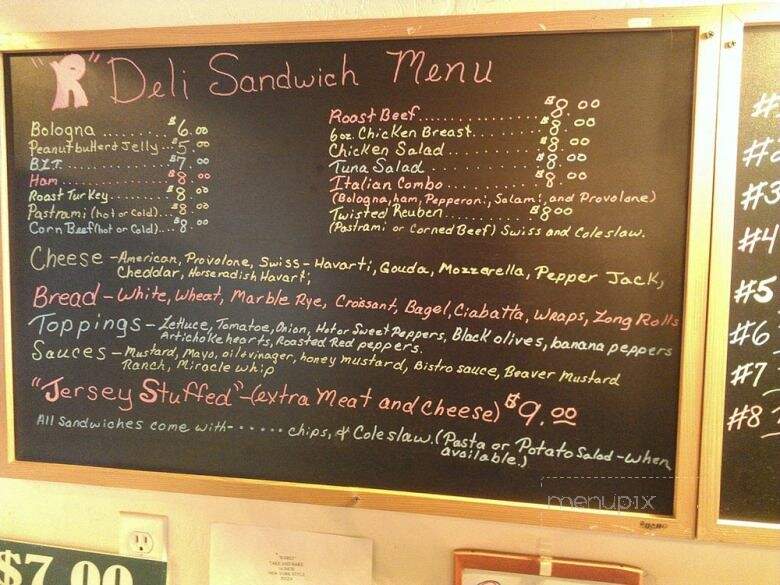 "R" Deli Sandwich Menu
Bologna ........ $6.00
Peanutbutter & Jelly... $5.00
B.L.T. ............ $7.00
Ham ............ $8.00
Roast Turkey ........ $8.00
Pastrami (hot or cold)... $8.00
Corn Beef (hot or cold).... $8.00
Roast Beef .............. $8.00
6oz. Chicken Breast ....... $8.00
Chicken Salad .......... $8.00
Tuna Salad ............ $8.00
Italian Combo .......... $8.00
(Bologna, ham, Pepperoni, Salami, and Provolone)
Twisted Reuben .......... $8.00
(Pastrami or Corned Beef) Swiss and Coleslaw.
Cheese - American, Provolone, Swiss - Havarti, Gouda, Mozzarella, Pepper Jack,
Cheddar, Horseradish Havarti,
Bread - White, Wheat, Marble Rye, Croissant, Bagel, Ciabatta, Wraps, Long Rolls
Toppings - Lettuce, Tomatoe, Onion, Hot or Sweet Peppers, Black olives, banana peppers
Artichoke hearts, Roasted Red peppers.
Sauces - Mustard, Mayo, oil & vinager, honey mustard, Bistro sauce, Beaver Mustard
Ranch, Miracle Whip
"Jersey Stuffed" - (extra Meat and cheese) $9.00
All Sandwiches come with - ..... chips, & Coleslaw. (Pasta or Potato Salad - when
available.)
#3
#4
#5
#6
#7
#8
menupix
$7.00